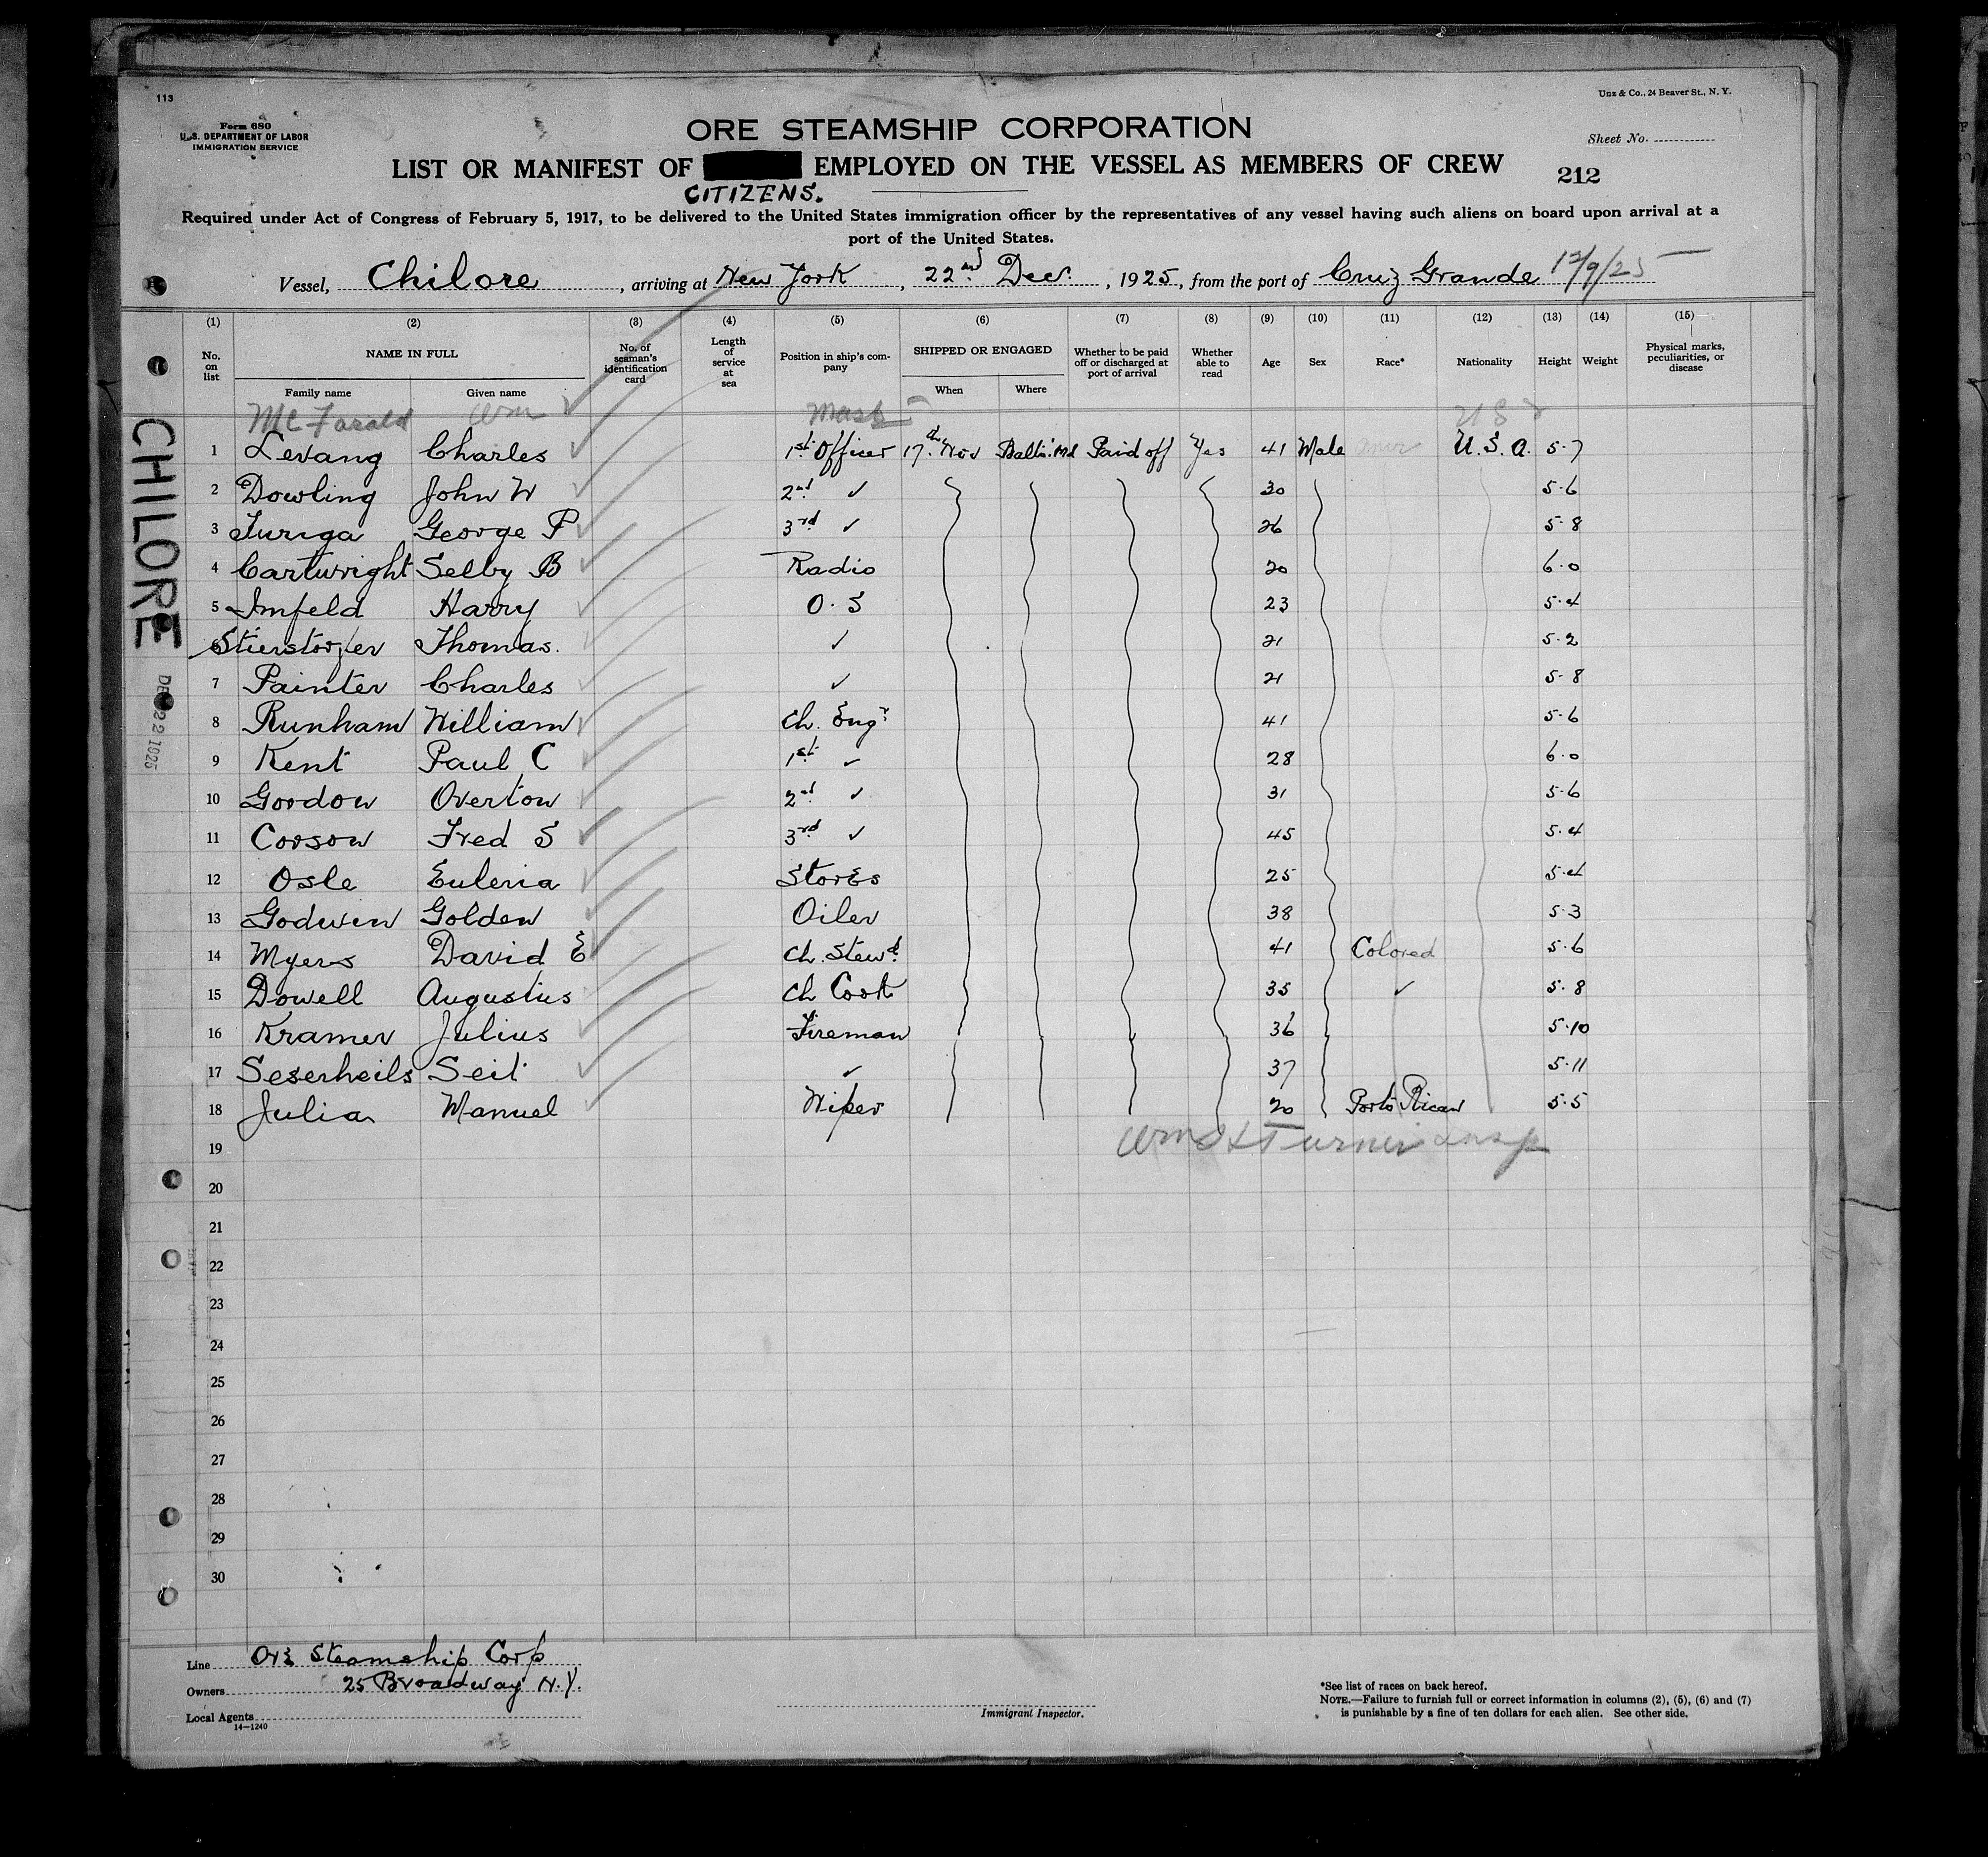 113
Unz & Co., 24 Beaver St., N. Y.
Form 680
U.S. DEPARTMENT OF LABOR
IMMIGRATION SERVICE
ORE STEAMSHIP CORPORATION
Sheet No.
LIST OR MANIFEST OF EMPLOYED ON THE VESSEL AS MEMBERS OF CREW
212
CITIZENS.
Required under Act of Congress of February 5, 1917, to be delivered to the United States immigration officer by the representatives of any vessel having such aliens on board upon arrival at a
port of the United States.
Vessel, Chilore, arriving at New York, 22nd Dec., 1925, from the port of Cruz Grande 12/9/25
(1) (2) (3) (4) (5) (6) (7) (8) (9) (10) (11) (12) (13) (14) (15)
No. on list NAME IN FULL No. of seaman's identification card Length of service at sea Position in ship's company SHIPPED OR ENGAGED Whether to be paid off or discharged at port of arrival Whether able to read Age Sex Race* Nationality Height Weight Physical marks, peculiarities, or disease
Family name Given name When Where
Wm Mast U S
1 Levang Charles 1st Officer 17th Nov Balto. Md Paid off Yes 41 Male Amer U.S.A. 5-7
2 Dowling John W 2nd ✓ 30 5-6
3 Turiga George P 3rd ✓ 26 5-8
4 Cartwright Selby B Radio 20 6-0
5 Imfeld Harry O.S 23 5-4
Stierstorfer Thomas. ✓ 21 5-2
7 Painter Charles ✓ 21 5-8
8 Runham William Ch. Engr. 41 5-6
9 Kent Paul C 1st ✓ 28 6-0
10 Gordon Overton 2nd ✓ 31 5-6
11 Corson Fred S 3rd ✓ 45 5-4
12 Osle Euleria Stores 25 5-4
13 Godwin Golden Oiler 38 5-3
14 Myers David E Ch. Stewd. 41 Colored 5-6
15 Dowell Augustus Ch Cook 35 ✓ 5-8
16 Kramer Julius Fireman 36 5-10
17 Seserheils Seit ✓ 37 5-11
18 Julia Manuel Wiper 20 Porto Rican 5-5
19 Turner Insp
20
21
22
23
24
25
26
27
28
29
30
CHILORE
DEC 22 1925
Line Ore Steamship Corp
Owners 25 Broadway N.Y.
Local Agents
14—1240
Immigrant Inspector.
*See list of races on back hereof.
NOTE.—Failure to furnish full or correct information in columns (2), (5), (6) and (7)
is punishable by a fine of ten dollars for each alien. See other side.